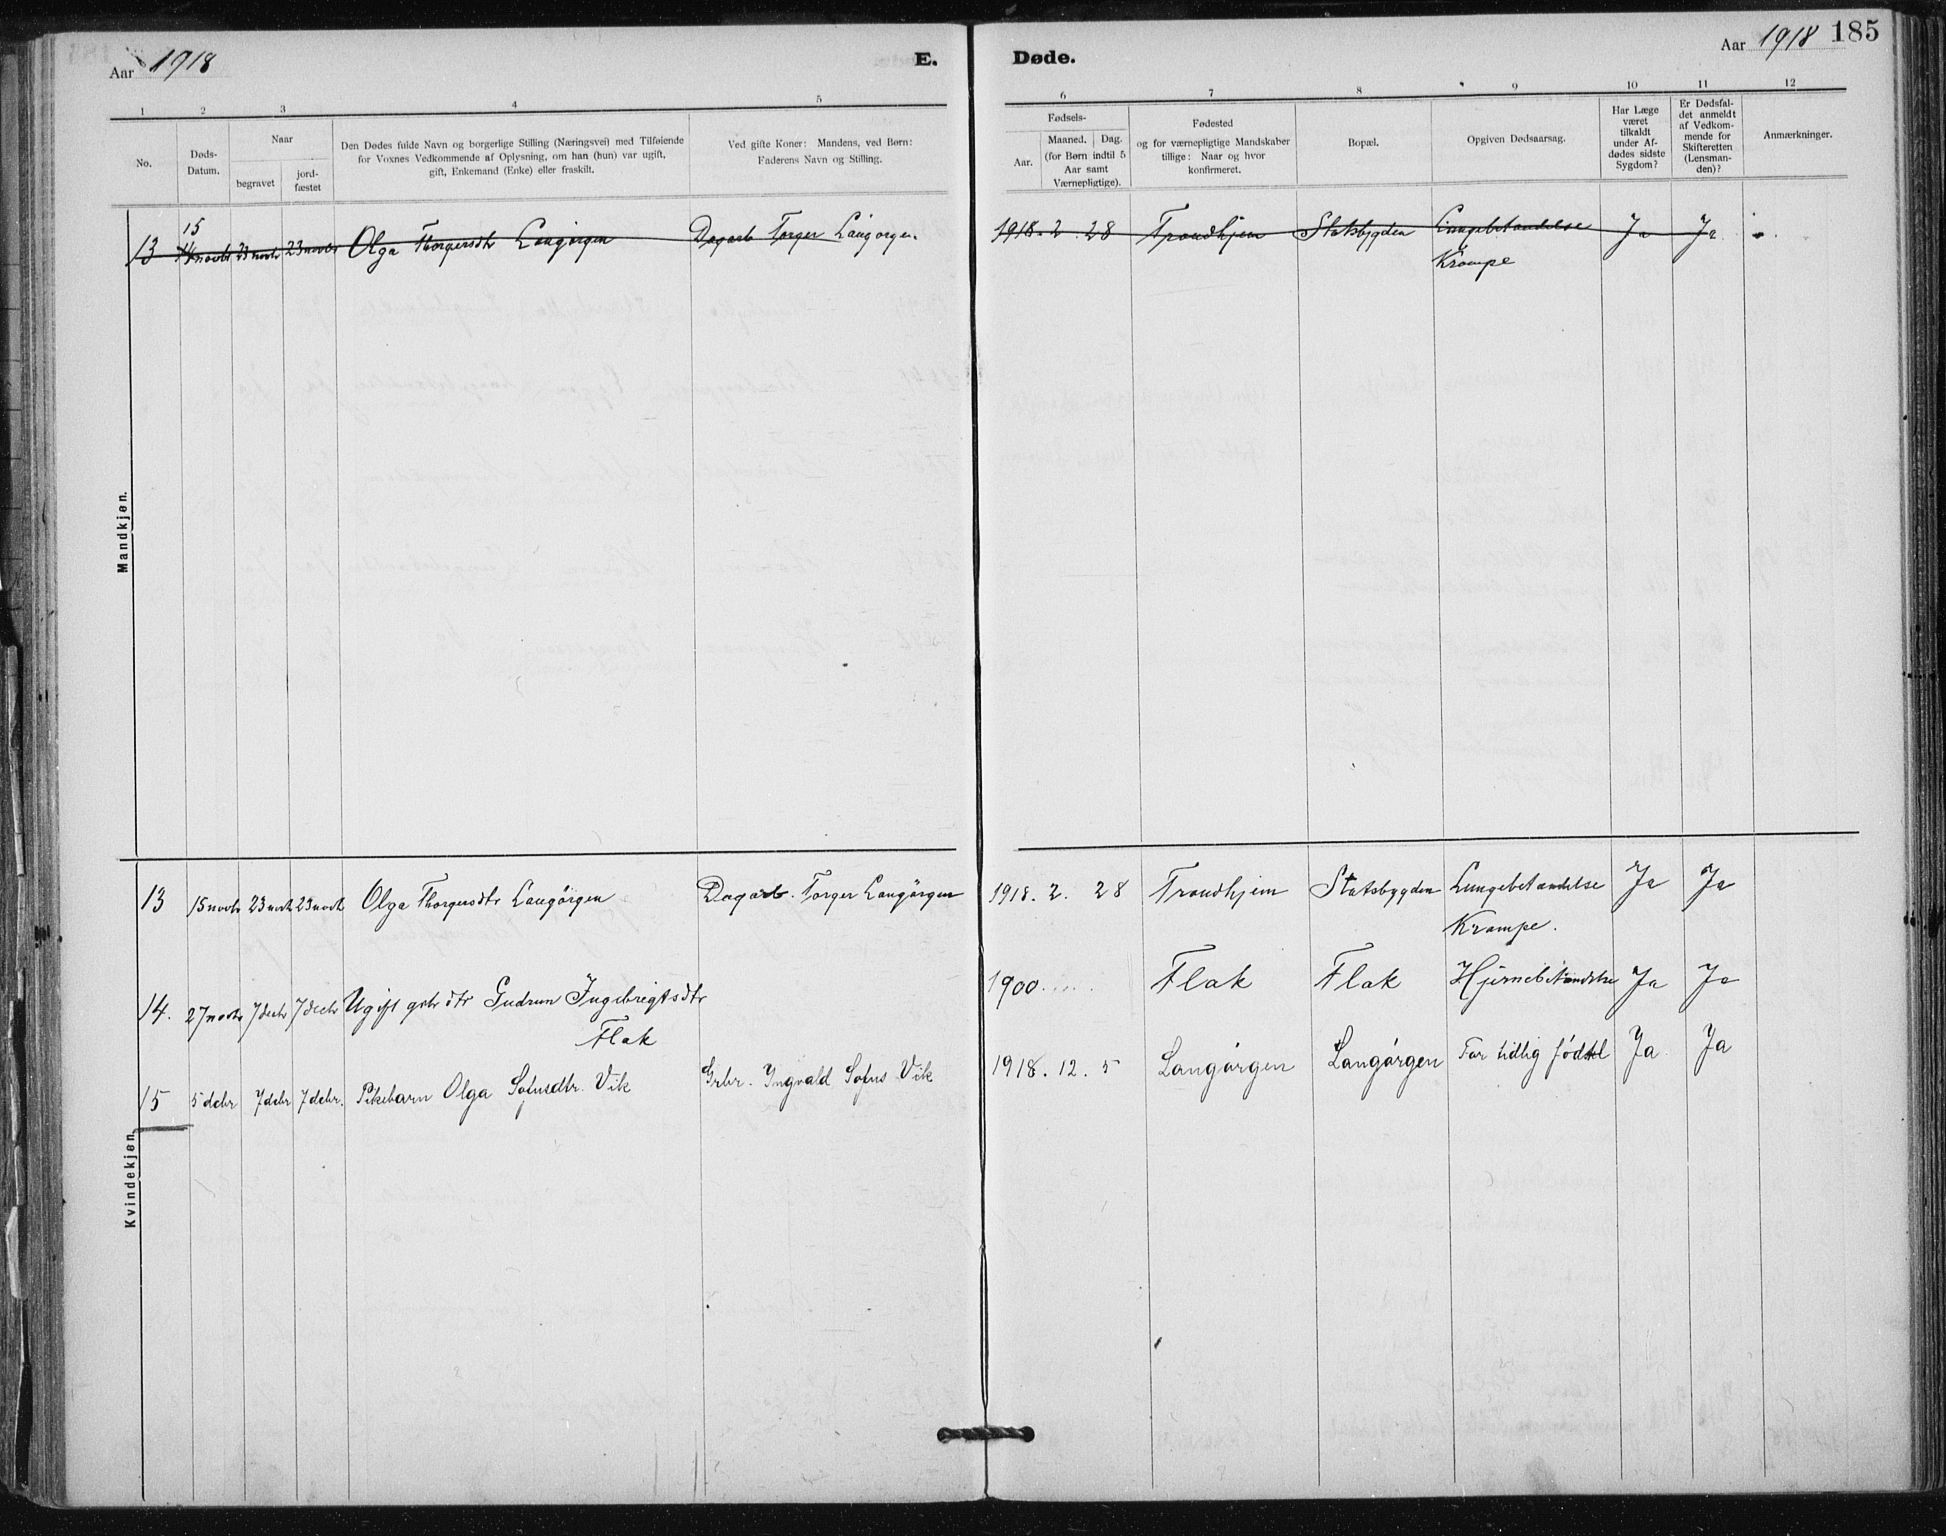 Aar 1918
E.
Døde.
Aar 1918
185
1 2 3 4 5 6 7 8 9 10 11 12
No.
Døds-
Datum.
Naar
begravet
jord-
fæstet
Den Dødes fulde Navn og borgerlige Stilling (Næringsvei) med Tilføiende
for Voxnes Vedkommende af Oplysning, om han (hun) var ugift,
gift, Enkemand (Enke) eller fraskilt.
Ved gifte Koner: Mandens, ved Børn:
Faderens Navn og Stilling.
Fødsels-
Aar.
Maaned. Dag.
(for Børn indtil 5
Aar samt
Værnepligtige).
Fødested
og for værnepligtige Mandskaber
tillige: Naar og hvor
konfirmeret.
Bopæl.
Opgiven Dødsaarsag.
Har Læge
været
tilkaldt
under Af-
dødes sidste
Sygdom?
Er Dødsfal-
det anmeldt
af Vedkom-
mende for
Skifteretten
(Lensman-
den)?
Anmærkninger.
Mandkjøn.
15
13 14 novbr 23 novbr 23 novbr Olga Thorgersdtr Langørgen Dagarb Torger Langørgen. 1918. 2. 28 Trondhjem Statsbygden Lungebetændelse Ja Ja
Krampe
Kvindekjøn.
13 15 novbr 23 novbr 23 novbr Olga Thorgersdtr Langørgen Dagarb. Torger Langørgen 1918. 2. 28 Trondhjem Statsbygden Lungebetændelse Ja Ja
Krampe.
14. 27 novbr 7 decbr 7 decbr Ugift gbr dtr Gudrun Ingebrigtsdtr 1900. Flak Flak Hjernebetændelse Ja Ja
Flak
15 5 debr 7 debr 7 debr. Pikebarn Olga Sofusdtr. Vik Grbr. Ingvald Sofus Vik 1918. 12. 5 Langørgen Langørgen For tidlig født Ja Ja